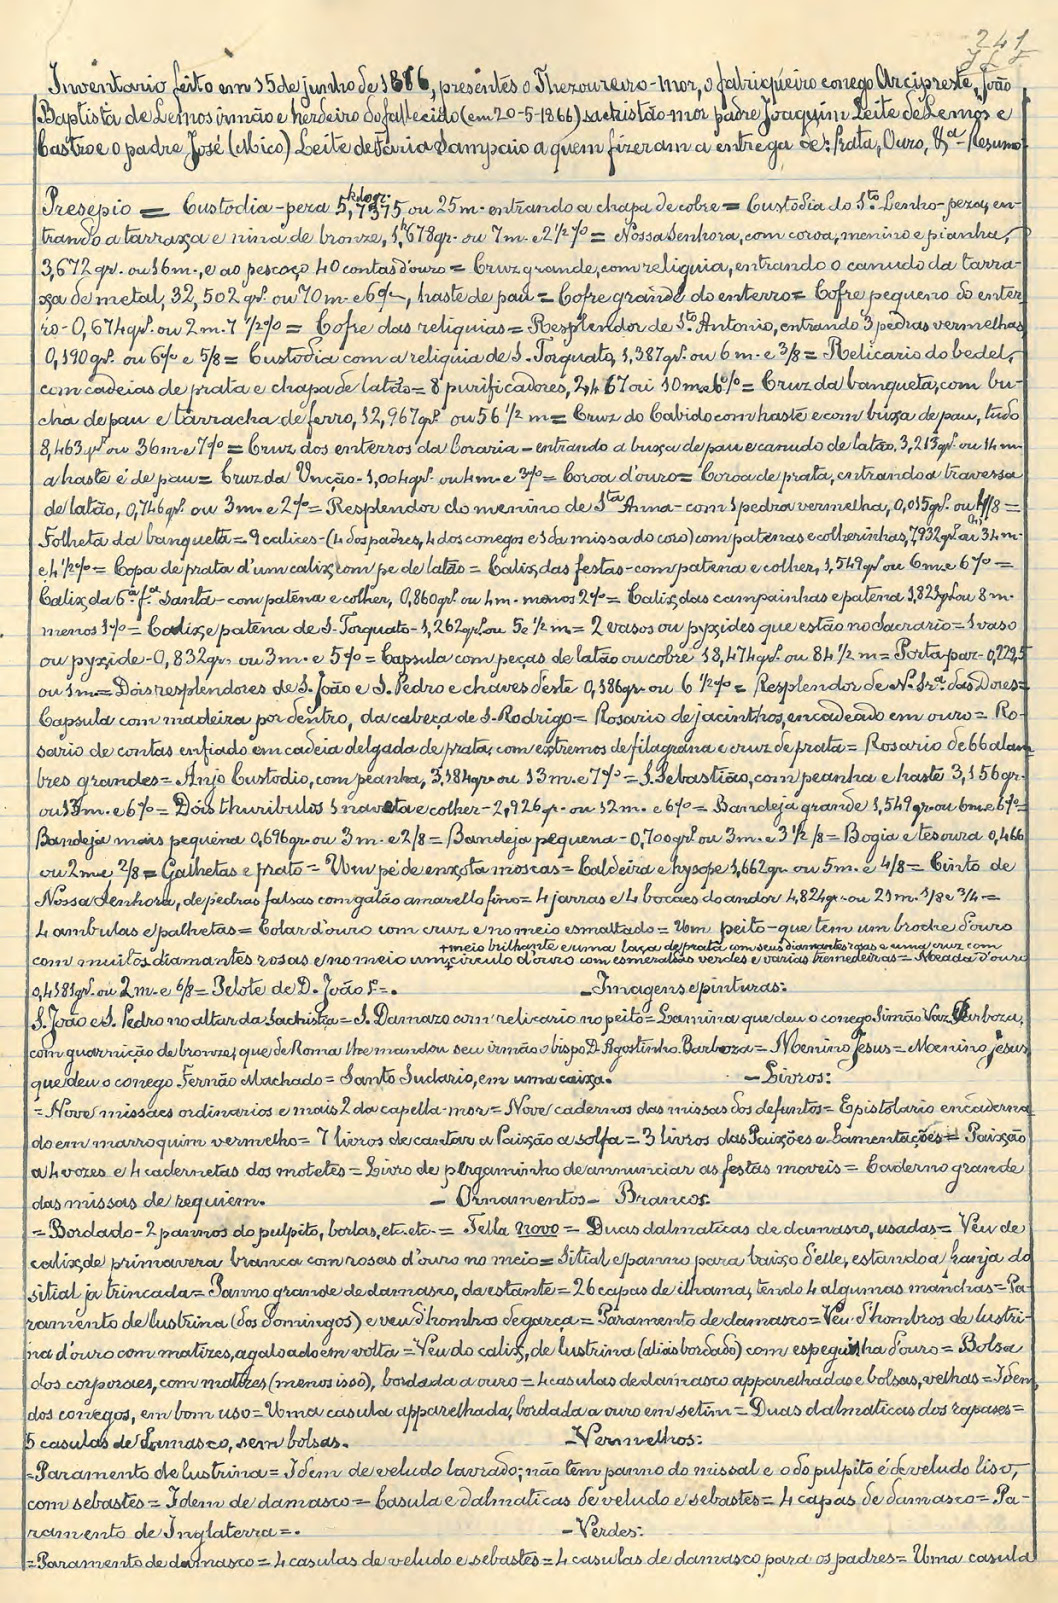 241
Inventario feito em 15 de junho de 1866, presentes o Thezoureiro-mor, o fabriqueiro conego Arcipreste, João
Baptista de Lemos irmão e herdeiro do fallecido (em 20-5-1866) sachristão-mor padre Joaquim Leite de Lemos e
Castro e o padre José (cibico) Leite de Faria Sampaio a quem fizeram a entrega de: Prata, Ouro, &ª - Resumo
Presepio = Custodia - peza 5,7375 ou 25 m. entrando a chapa de cobre = Custodia do Sto Lenho - peza, en-
trando a tarraxa e nina de bronze, 1,678 gr. ou 7 m. e 2 1/2 % = Nossa Senhora, com coroa, menino e pianha,
3,672 gr. ou 16 m., e ao pescoço 40 contas d'ouro = Cruz grande, com reliquia, entrando o canudo da tarra-
xa de metal, 32,502 gr. ou 70 m. e 6 %, haste de pau = Cofre grande do enterro = Cofre pequeno do enter-
ro - 0,674 gr. ou 2 m. 7 1/2 % = Cofre das reliquias = Resplendor de Sto Antonio, entrando 3 pedras vermelhas
0,190 gr. ou 6 % e 5/8 = Custodia com a reliquia de S. Torquato, 1,387 gr. ou 6 m. e 3/8 = Relicario do bedel,
com cadeias de prata e chapa de latão = 8 purificadores, 2,467 ou 10 m e 6 % = Cruz da banqueta, com bu-
cha de pau e tarracha de ferro, 12,967 gr. ou 56 1/2 m = Cruz do Cabido com haste e com buxa de pau, tudo
8,463 gr. ou 36 m e 7 % = Cruz dos enterros da Coraria - entrando a buxa de pau e canudo de latão, 3,213 gr. ou 14 m.
a haste é de pau = Cruz da Unção - 1,004 gr. ou 4 m. e 3 % = Coroa d'ouro = Coroa de prata, entrando a travessa
de latão, 0,746 gr. ou 3 m. e 2 % = Resplendor do menino de Sta Anna - com 1 pedra vermelha, 0,015 gr. ou 4/8 =
Folheta da banqueta = 9 calices - (4 dos padres, 4 dos conegos e 1 da missa do coro) com patenas e colherinhas, 7932 gr. ou 34 m.
e 4 1/2 % = Copa de prata d'um calix, com pe de latão = Calix das festas - com patena e colher, 1,549 gr. ou 6 m e 6 % =
Calix da 6ª fª Santa - com patena e colher, 0,860 gr. ou 4 m. menos 2 % = Calix das campainhas e patena 1,823 gr. ou 8 m.
menos 1 % = Calix e patena de S. Torquato - 1,262 gr. ou 5 e 1/2 m. = 2 vasos ou pyxides que estão no Sacrario = 1 vaso
ou pyxide - 0,832 gr. ou 3 m. e 5 % = Capsula com peças de latão ou cobre 18,474 gr. ou 84 1/2 m = Porta paz - 0,229,5
ou 1 m. = Dois resplendores de S. João e S. Pedro e chaves d'este 0,186 gr. ou 6 1/2 % = Resplendor de N. Srª das Dores =
Capsula com madeira por dentro, da cabeça de S. Rodrigo = Rosario de jacinthos, encadeado em ouro = Ro-
sario de contas enfiado em cadeia delgada de prata, com extremos de filagrana e cruz de prata = Rosario de 66 alam-
bres grandes = Anjo Custodio, com peanha, 3,184 gr. ou 13 m. e 7 % = S. Sebastião, com peanha e haste 3,156 gr.
ou 13 m. e 6 % = Dois thuribulos 1 naveta e colher - 2,926 gr. ou 12 m. e 6 % = Bandeja grande 1,549 gr. ou 6 m. e 6 % =
Bandeja mais pequena 0,696 gr. ou 3 m. e 2/8 = Bandeja pequena - 0,700 gr. ou 3 m. e 3 1/2 /8 = Bogia e tesoura 0,466
ou 2 m e 2/8 = Galhetas e prato = Um pé de enxota moscas = Caldeira e hysope 1,662 gr. ou 5 m. e 4/8 = Cinto de
Nossa Senhora, de pedras falsas com galão amarello fino = 4 jarras e 4 bocaes do andor 4,824 gr. ou 21 m. 1/8 e 3/4 =
4 ambulas e palhetas = Colar d'ouro com cruz e no meio esmaltado = Um peito - que tem um broche d'ouro
+ meio brilhante e uma laça de prata com seus diamantes rosas e uma cruz com
com muitos diamantes rosas e no meio um + circulo d'ouro com esmeraldas verdes e varias tremedeiras = Meada d'ouro
0,4181 gr. ou 2 m. e 6/8 = Pelote de D. João 1º =. - Imagens e pinturas:
S. João e S. Pedro no altar da Sachristia = S. Damazo com relicario no peito = Lamina que deu o conego Simão Vaz Barboza,
com guarnição de bronze, que de Roma lhe mandou seu irmão o bispo D. Agostinho Barboza = Menino Jesus = Menino Jesus
que deu o conego Fernão Machado = Santo Sudario, em uma caixa. - Livros:
= Nove missaes ordinarios e mais 2 da capella-mor = Nove cadernos das missas dos defuntos = Epistolario encaderna-
do em marroquim vermelho = 7 livros de cantar a Paixão a solfa = 3 livros das Paixões e Lamentações = Paixão
a 4 vozes e 4 cadernetas dos motetes = Livro de pergaminho de annunciar as festas moveis = Caderno grande
das missas de requiem. - Ornamentos - Brancos:
= Bordado - 2 pannos do pulpito, borlas, etc. etc. = Tella novo = Duas dalmaticas de damasco, usadas = Veu de
calix de primavera branca com rosas d'ouro no meio = Sitial e panno para baixo d'elle, estando a franja do
sitial ja trincada = Panno grande de damasco, da estante = 26 capas de ilhama, tendo 4 algumas manchas = Pa-
ramento de lustrina (dos domingos) e veu d'hombros de garça = Paramento de damasco = Veu d'hombros de lustri-
na d'ouro com matizes, agaloado em volta = Veu do calix, de lustrina (aliás bordado) com espeguilha d'ouro = Bolsa
dos corporaes, com matizes (menos isso), bordada a ouro = 4 casulas de damasco apparelhadas e bolsas, velhas = Idem,
dos conegos, em bom uso = Uma casula apparelhada, bordada a ouro em setim = Duas dalmaticas dos rapazes =
5 casulas de damasco, sem bolsas. - Vermelhos:
= Paramento de lustrina = Idem de veludo lavrado; não tem panno do missal e o do pulpito é de veludo liso,
com sebastes = Idem de damasco = Casula e dalmaticas de veludo e sebastes = 4 capas de damasco = Pa-
ramento de Inglaterra =. - Verdes:
= Paramento de damasco = 4 casulas de veludo e sebastes = 4 casulas de damasco para os padres = Uma casula